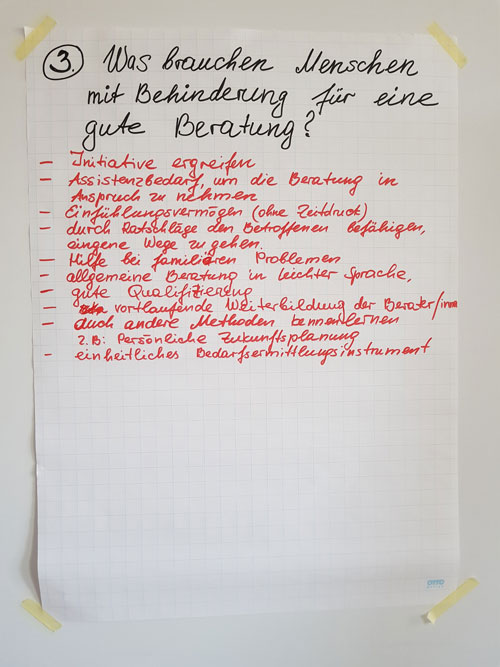 3. Was brauchen Menschen
mit Behinderung für eine
gute Beratung?
- Initiative ergreifen
- Assistenzbedarf, um die Beratung in
Anspruch zu nehmen
- Einfühlungsvermögen (ohne Zeitdruck)
- durch Ratschläge den Betroffenen befähigen,
eingene Wege zu gehen.
- Hilfe bei familiären Problemen
- allgemeine Beratung in leichter Sprache,
- gute Qualifizierung
- vortlaufende Weiterbildung der Berater/innen
- auch andere Methoden kennenlernen
z.B: Persönliche Zukunftsplanung
- einheitliches Bedarfsermittlungsinstrument